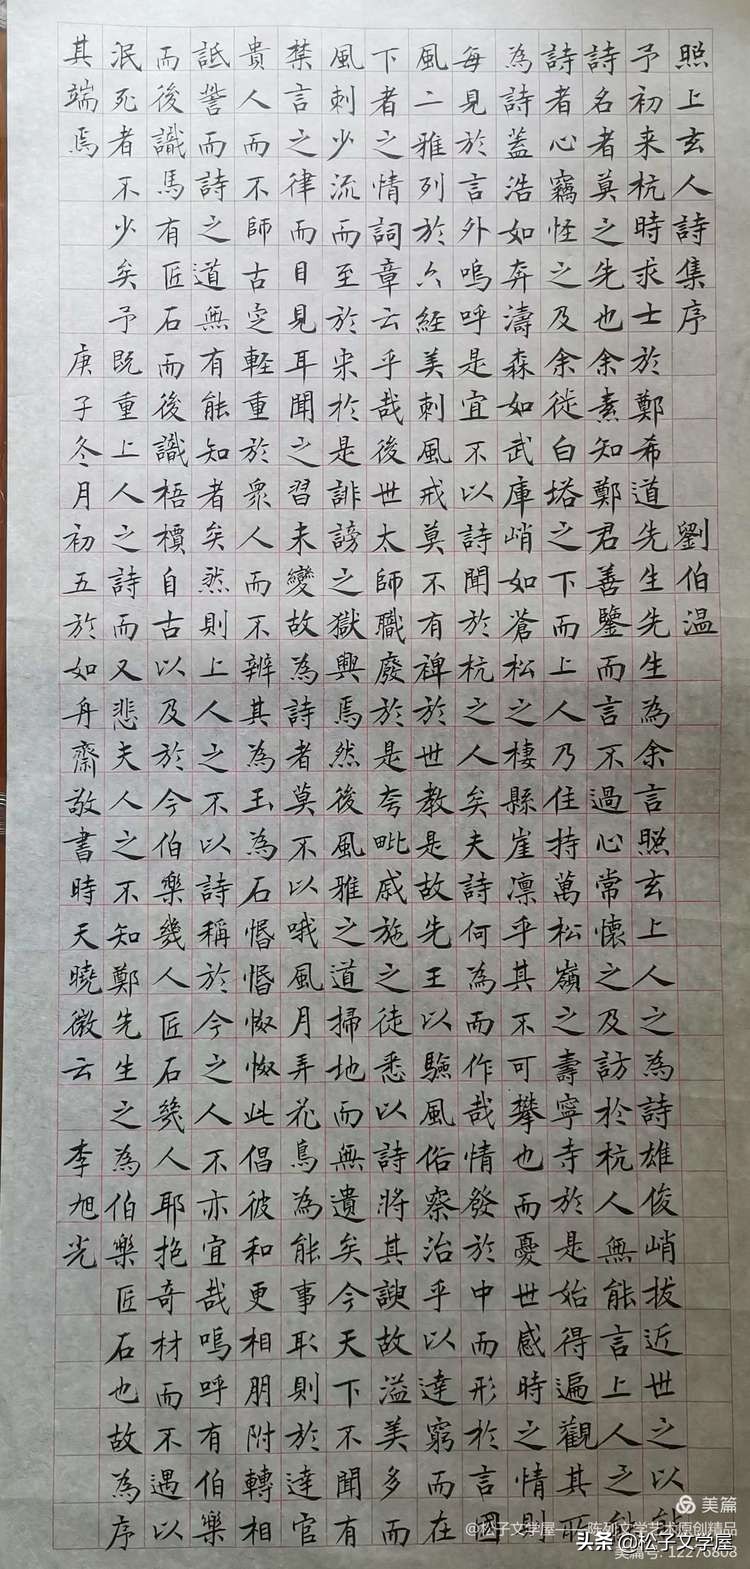 照上玄人詩集序 劉伯温
予初来杭時求士於鄭希道先生先生為余言照玄上人之為詩雄俊峭拔近世之以
詩名者莫之先也余素知鄭君善鑒而言不過心常懷之及訪於杭人無能言上人之
詩者心竊怪之及余從白塔之下而上人乃住持萬松嶺之壽寧寺於是始得遍觀其所
為詩蓋浩如奔濤森如武庫峭如蒼松之棲縣崖凛乎其不可攀也而憂世感時之情則
每見於言外嗚呼是宜不以詩聞於杭之人矣夫詩何為而作哉情發於中而形於言國
風二雅列於六經美刺風戒莫不有裨於世教是故先王以驗風俗察治乎以達窮而在
下者之情詞章云乎哉後世太師職廢於是夸毗戚施之徒悉以詩將其諛故溢美多而
風刺少流而至於宋於是誹謗之獄興焉然後風雅之道掃地而無遺矣今天下不聞有
禁言之律而目見耳聞之習未變故為詩者莫不以哦風月弄花鳥為能事取則於達官
貴人而不師古定軽重於衆人而不辨其為玉為石惛惛怓怓此倡彼和更相朋附轉相
詆訾而詩之道無有能知者矣然則上人之不以詩稱於今之人不亦宜哉嗚呼有伯樂
而後識馬有匠石而後識梧檟自古以及於今伯樂幾人匠石幾人耶抱奇材而不遇以
泯死者不少矣予既重上人之詩而又悲夫人之不知鄭先生之為伯樂匠石也故為序
其端焉 庚子冬月初五於如舟齋敬書時天曉微云 李旭光
美篇
@松子文学屋——陈列文学艺术原创精品
头条 @松子文学屋
美篇号: 12276808